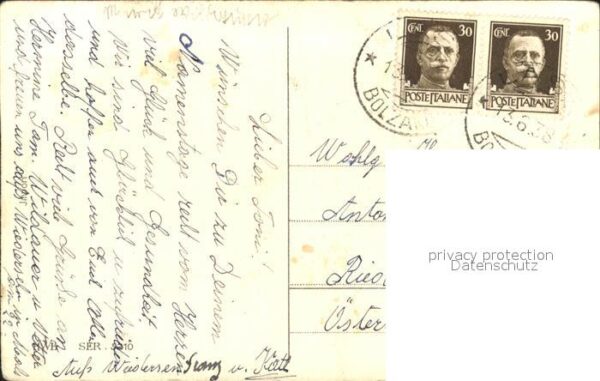 Lieber Toni!
Wünschen Dir zu Deinem
Namenstage recht vom Herzen
viel Glück und Gesundheit
Wir sind glücklich u. zufrieden
und hoffen auch von Euch
dasselbe. Recht viele Grüße an
Hermine Fam. Wildauer u. Vetter
und freuen uns auf Wiedersehn in
Auf Wiedersehen Franz u. Kathi
SER.
CENT. 30
POSTE ITALIANE
CENT. 30
POSTE ITALIANE
BOLZA
13.6.38
BO
Wohlg
Anton
Ried
Öster
privacy protection
Datenschutz